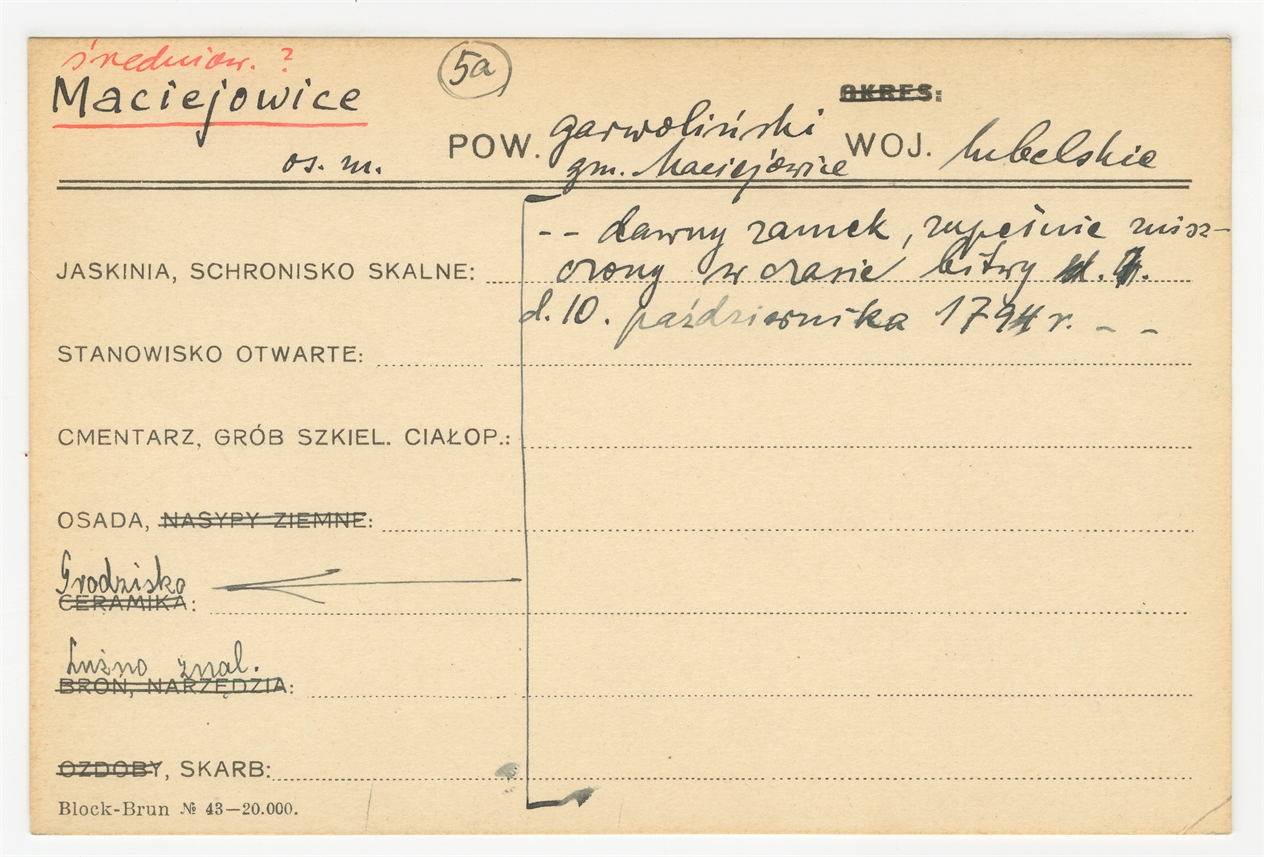 średniow. ?
Maciejowice
5a
OKRES:
POW. garwoliński WOJ. lubelskie
os. m. gm. Maciejowice
-- dawny zamek, zupełnie znisz-
JASKINIA, SCHRONISKO SKALNE: czony w czasie bitwy
d. 10. października 1794 r. - -
STANOWISKO OTWARTE:
CMENTARZ, GRÓB SZKIEL. CIAŁOP.:
OSADA, NASYPY ZIEMNE:
Grodzisko
CERAMIKA:
Luźno znal.
BROŃ, NARZĘDZIA:
OZDOBY, SKARB:
Block-Brun № 43—20.000.